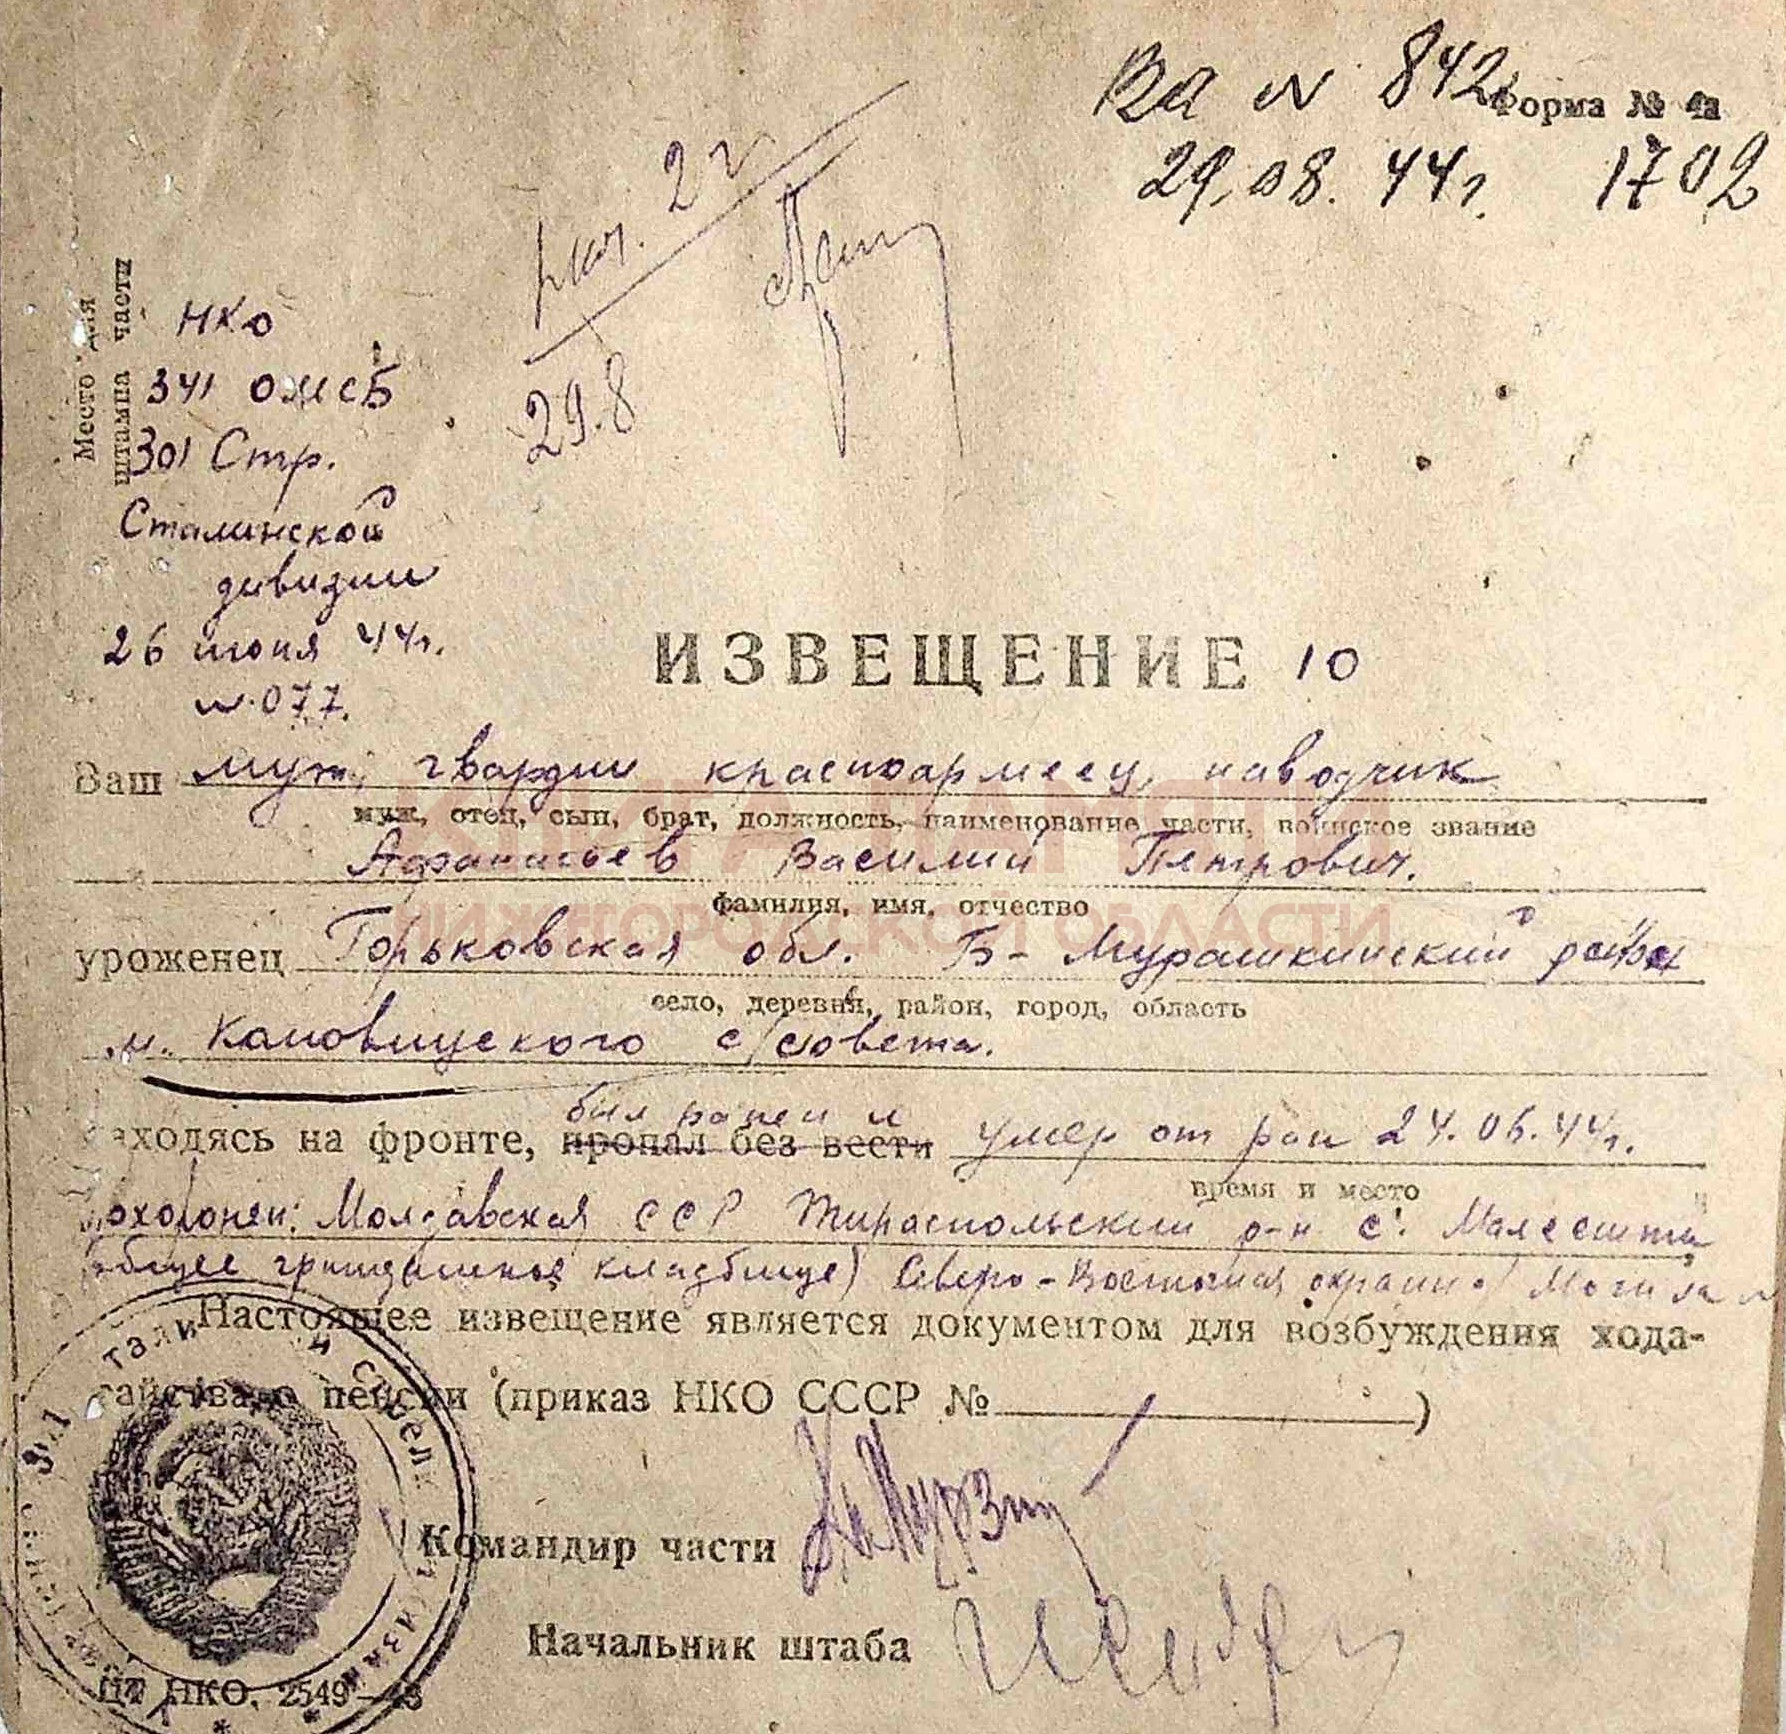 Ва N 842
Форма № 4а
29.08.44г. 1702
2г
29.8
Место для
штампа части
НКО
341 ОМСБ
301 Стр.
Сталинской
дивизии
26 июня 44г.
N.077.
ИЗВЕЩЕНИЕ 10
Ваш муж, гвардии красноармеец, наводчик
муж, отец, сын, брат, должность, наименование части, воинское звание
Афанасьев Василий Петрович.
фамилия, имя, отчество
КНИГА ПАМЯТИ
НИЖЕГОРОДСКОЙ ОБЛАСТИ
уроженец Горьковская обл. Б-Мурашкинский район
село, деревня, район, город, область
с/совета.
был ранен и
находясь на фронте, пропал без вести умер от ран 24.06.44г.
время и место
Похоронен: Молдавская ССР Тираспольский р-н с. Малеешты
(общее гражданское кладбище) Северо-Восточная окраина Могила
Настоящее извещение является документом для возбуждения хода-
тайства о пенсии (приказ НКО СССР № )
Командир части
Начальник штаба
ЦТ НКО. 2549—43